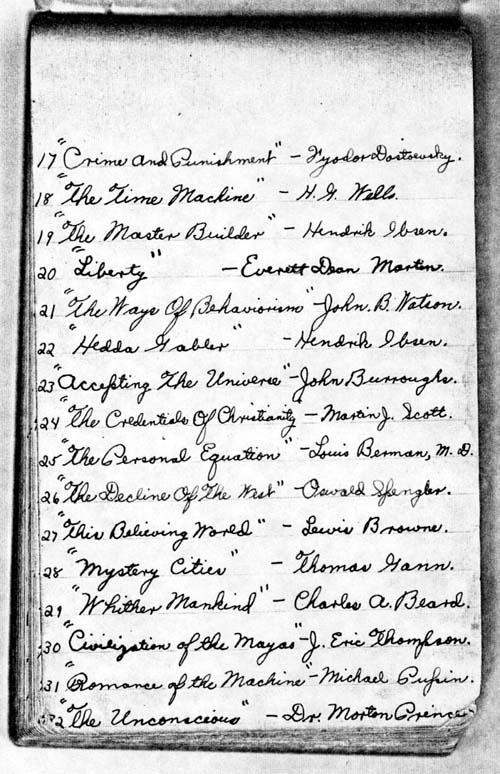 17 "Crime and Punishment" - Fyodor Dostoevsky.
18 "The Time Machine" - H. G. Wells.
19 "The Master Builder" - Hendrik Ibsen.
20 "Liberty" - Everett Dean Martin.
21 "The Ways Of Behaviorism" - John. B. Watson.
22 "Hedda Gabler" - Hendrik Ibsen.
23 "Accepting The Universe" - John Burroughs.
24 "The Credentials Of Christianity - Martin J. Scott.
25 "The Personal Equation" - Louis Berman, M. D.
26 "The Decline Of The West" - Oswald Spengler.
27 "This Believing World" - Lewis Browne.
28 "Mystery Cities" - Thomas Gann.
29 "Whither Mankind" - Charles A. Beard.
30 "Civilization of the Mayas" - J. Eric Thompson.
31 "Romance of the Machine" - Michael Pupin.
32 "The Unconscious" - Dr. Morton Prince